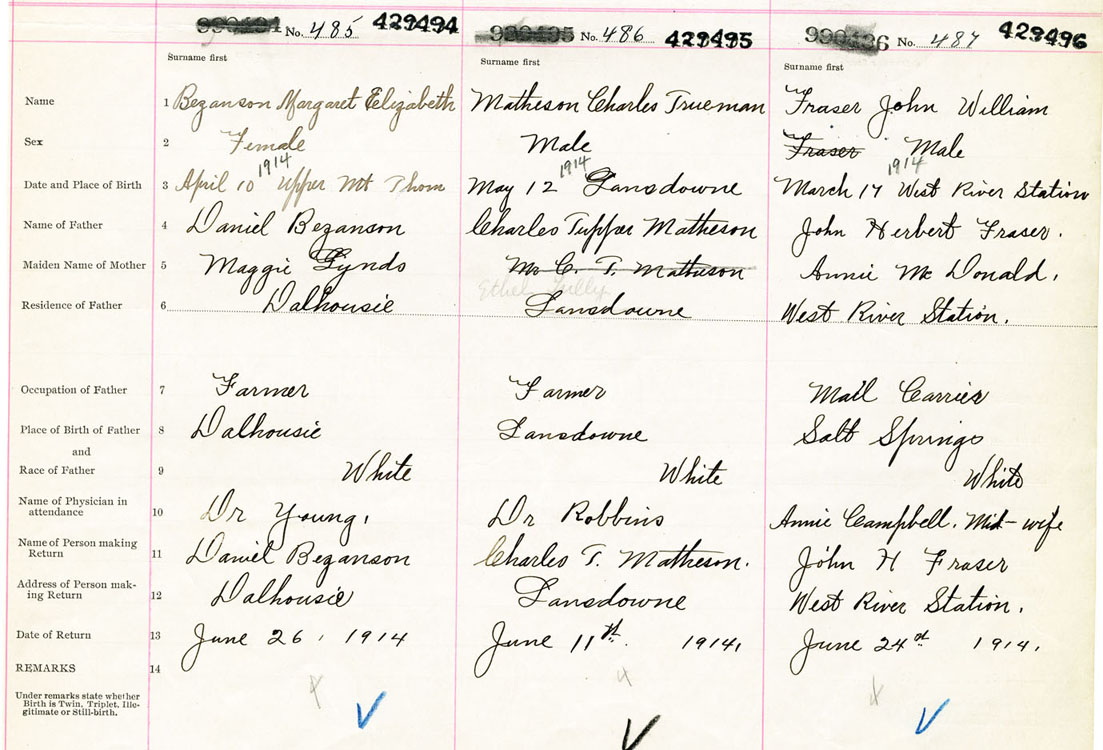 No. 485 429494 No. 486 429495 No. 487 429496
Surname first Surname first Surname first
Name 1 Bezanson Margaret Elizabeth Matheson Charles Trueman Fraser John William
Sex 2 Female Male Fraser Male
1914 1914 1914
Date and Place of Birth 3 April 10 Upper Mt Thom May 12 Lansdowne March 17 West River Station
Name of Father 4 Daniel Bezanson Charles Tupper Matheson John Herbert Fraser.
Maiden Name of Mother 5 Maggie Lynds Mrs C. T. Matheson Annie McDonald.
Ethel
Residence of Father 6 Dalhousie Lansdowne West River Station.
Occupation of Father 7 Farmer Farmer Mail Carrier
Place of Birth of Father 8 Dalhousie Lansdowne Salt Springs
and
Race of Father 9 White White White
Name of Physician in
attendance 10 Dr Young, Dr Robbins Annie Campbell. Mid-wife
Name of Person making
Return 11 Daniel Bezanson Charles T. Matheson. John H Fraser
Address of Person mak-
ing Return 12 Dalhousie Lansdowne West River Station.
Date of Return 13 June 26, 1914 June 11th. 1914, June 24th 1914.
REMARKS 14
Under remarks state whether
Birth is Twin. Triplet. Ille-
gitimate or Still-birth.